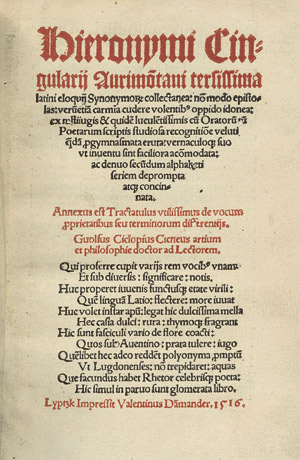 Hieronymi Cin-
gularij Aurimõtani tersissima
latini eloquij Synonymoꝝ collectanea: nõ modo episto-
las: verũetiã carmĩa cudere volentibꝰ oppido idonea;
ex
& quidẽ luculẽtissimis cũ Oratorũ tũ
Poetarum scriptis studiosa recognitiõe veluti
q̃dã ꝓgymnasmata eruta: vernaculoq̃ suo
vt inuentu sint faciliora acõmodata:
ac denuo secũdum alphabeti
seriem deprompta
atq̃ concin-
nata.
Annexus est Tractatulus vtilissimus de vocum
ꝓprietatibus seu terminorum differẽtijs.
Guolfius Ciclopius Cicneus artium
et philosophie doctor ad Lectorem.
Qui proferre cupit varijs rem vocibꝰ vnam
Et sub diuersis: significare: notis,
Huc properet iuuenis functusq̃ etate virili:
Quẽ linguã Latio: flectere: more iuuat
Huc volet instar apũ: legat hic dulcissima mella
Hec casia dulci: rura: thymoq̃ fragrant
Hic sunt fasciculi vario de flore coacti:
Quos sub Auentino: prata tulere: iugo
Quẽlibet hec adeo reddẽt polyonyma ꝓmptũ
Vt Lugdonenses: nõ trepidaret: aquas
Que facundus habet Rhetor celebrisq̃ poeta:
Hic simul in paruo sunt glomerata libro.
Lyptzk Impressit Valentinus Dãmander. 1516.